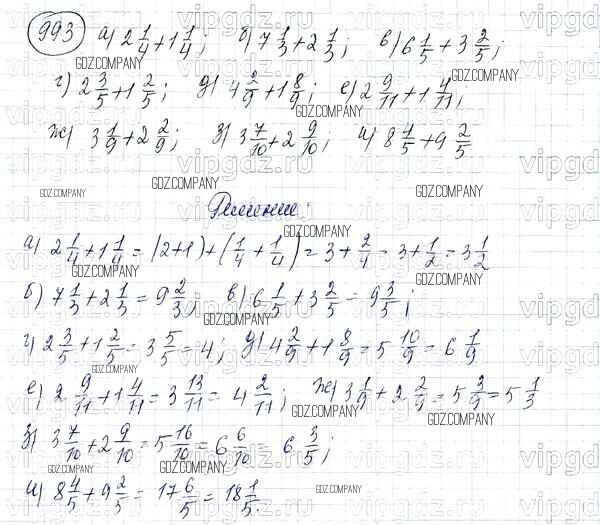 993 а) 2 1/4 + 1 1/4; б) 7 1/3 + 2 1/3; в) 6 1/5 + 3 2/5;
г) 2 3/5 + 1 2/5; д) 4 2/9 + 1 8/9; е) 2 9/11 + 1 4/11;
ж) 3 1/9 + 2 2/9; з) 3 7/10 + 2 9/10; и) 8 4/5 + 9 2/5
Решение:
а) 2 1/4 + 1 1/4 = (2+1) + (1/4 + 1/4) = 3 + 2/4 = 3 + 1/2 = 3 1/2
б) 7 1/3 + 2 1/3 = 9 2/3; в) 6 1/5 + 3 2/5 = 9 3/5;
г) 2 3/5 + 1 2/5 = 3 5/5 = 4; д) 4 2/9 + 1 8/9 = 5 10/9 = 6 1/9
е) 2 9/11 + 1 4/11 = 3 13/11 = 4 2/11; ж) 3 1/9 + 2 2/9 = 5 3/9 = 5 1/3
з) 3 7/10 + 2 9/10 = 5 16/10 = 6 6/10 = 6 3/5;
и) 8 4/5 + 9 2/5 = 17 6/5 = 18 1/5.
GDZ.COMPANY
vipgdz.ru